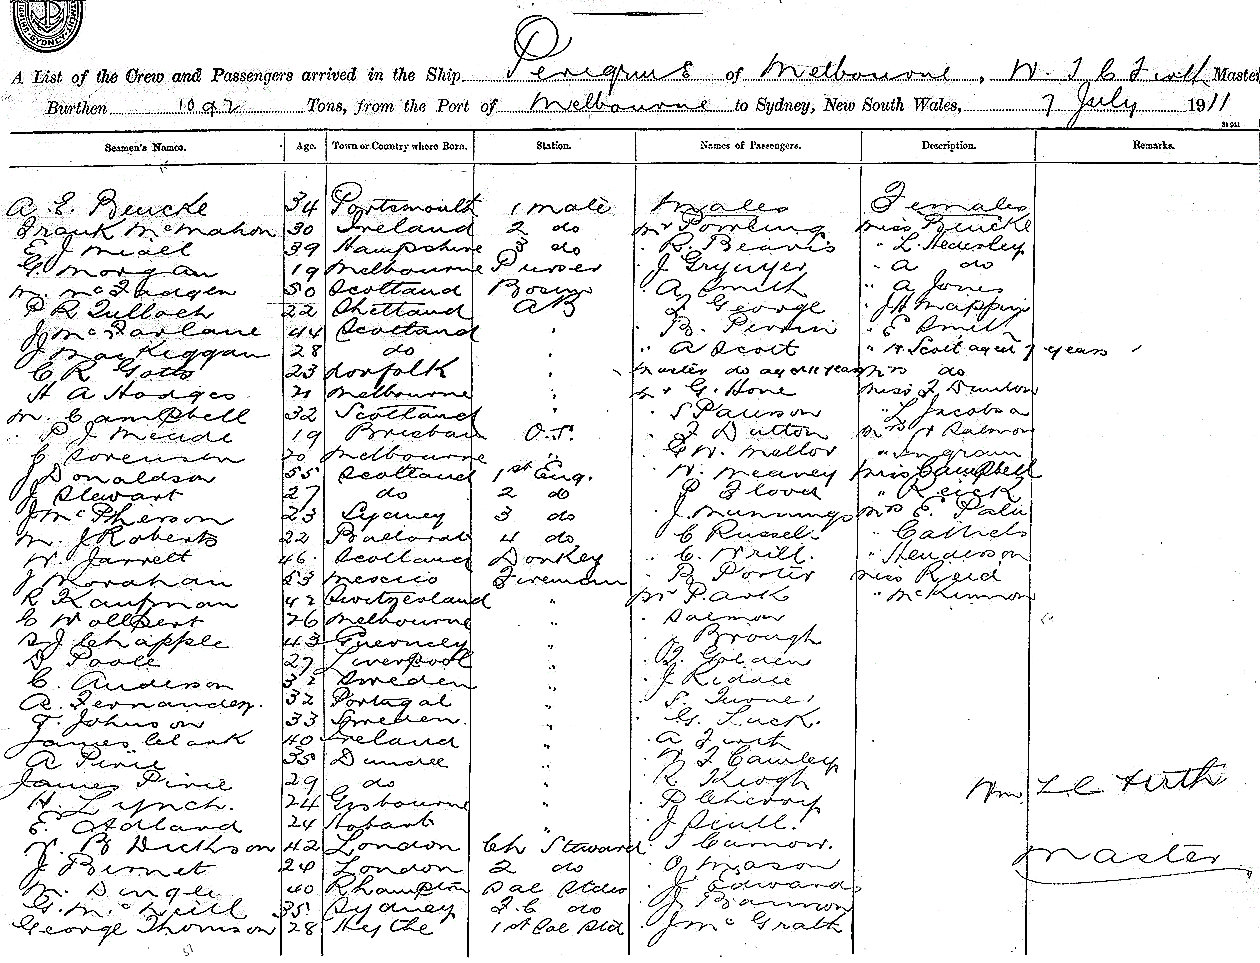 A List of the Crew and Passengers arrived in the Ship Peregrine of Melbourne, W. T C Firth Master
Burthen 1092 Tons, from the Port of Melbourne to Sydney, New South Wales, 7 July 1911
Seamen's Names. Age. Town or Country where Born. Station. Names of Passengers. Description. Remarks.
A. E. Beucke 34 Portsmouth 1 mate Males Females
Frank McMahon 30 Ireland 2 do Mr Pomling Miss Beucke
E. J Miall 39 Hampshire 3 do " R. Beavis " L. Hederley
G. Morgan 19 Melbourne Purser J " A do
M. McFadgen 50 Scotland Bosun " A Smith " A Jones
P R Tulloch 22 Shetland AB " George " J H Mapping
J McFarlane 44 Scotland " " B. Perrin " E Smith
J MacKeggan 28 do " " A Scott " Scott aged 7 years
C R Gotts 23 Norfolk " Master do aged 11 years Mrs do
H A Hodges 21 Melbourne " Mr G. Hone Miss J Dunlow
M. Campbell 32 Scotland " " S Paurson " L Jacobson
P J Meude 19 Brisbane O.S. " J Dutton Mrs W Salmon
C Sorensen 20 Melbourne " " E W. Mellor " Ingram
J Donaldson 55 Scotland 1st Eng. " W. Meaney Miss Campbell
J Stewart 27 do 2 do " P Glover " Reick
J McPherson 23 Sydney 3 do " J. Munnings Mrs E. Pala
M. J Roberts 22 Ballarat 4 do " C Russell "
W. Jarrett 46 Scotland Donkey " C. Wrill. " Henderson
J Morahan 53 Mexico Fireman " B Porter Miss Reid
R Kaufman 42 Switzerland " Mr Park " McKinnon
E Wollpert 26 Melbourne " Salmon
S J Chapple 43 Guernsey " " Brough
D Poole 27 Liverpool " " Golden
C. Anderson 32 Sweden " " J Riddle
A. Fernandez. 32 Portugal " " S. Turner
T. Johnson 33 Sweden. " " G. Luck.
James Clark 40 Ireland " " A Firth
A Pirie 35 Dundee " " W J Cawley
James Pirie 29 do " " R Keogh Wm. T. C Firth
H. Lynch. 24 Gisbourne " " P Cherry
E. Adland 24 Hobart " " J Scull.
V. B Dickson 42 London Ch Steward " S Carnow.
J Birnet 20 London 2 do " O Mason Master
M. Dingle 40 Rhampton Sal Stdss " J Edwards
G. McNeill 35 Sydney F.C do " J Bannon
George Thomson 28 Hythe 1st Sal Std " J McGrath